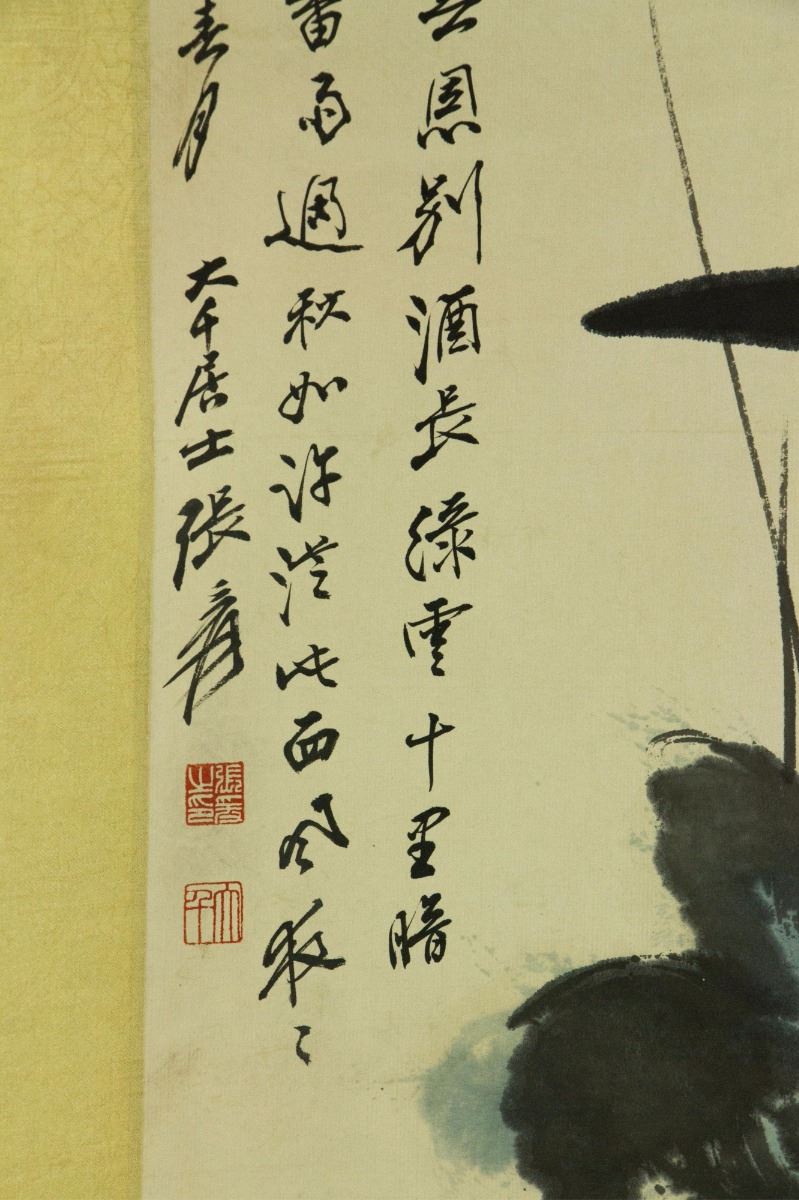 恩別酒長綠雲十里暗
雨過秋如許從此西風夜夜
春月 大千居士張爰
張爰之印
大千